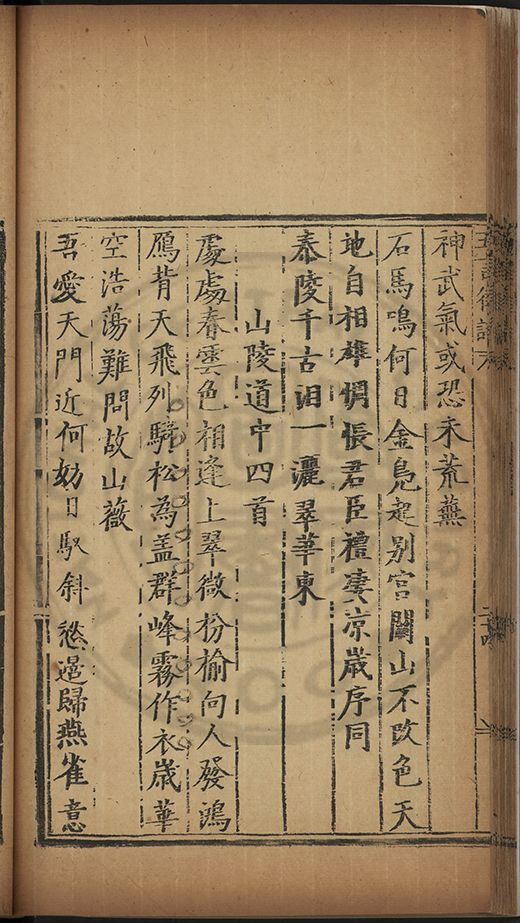 神武氣或恐未荒蕪
石馬鳴何日金鳧起别宫關山不改色天
地自相雄惆悵君臣禮凄凉歳序同
泰陵千古泪一灑翠華東
山陵道中四首
處處春雲色相逢上翠微枌榆向人發鴻
鴈背天飛列騎松為盖群峰霧作衣歳華
空浩蕩難問故山薇
吾愛天門近何妨日馭斜愁邉歸燕雀意